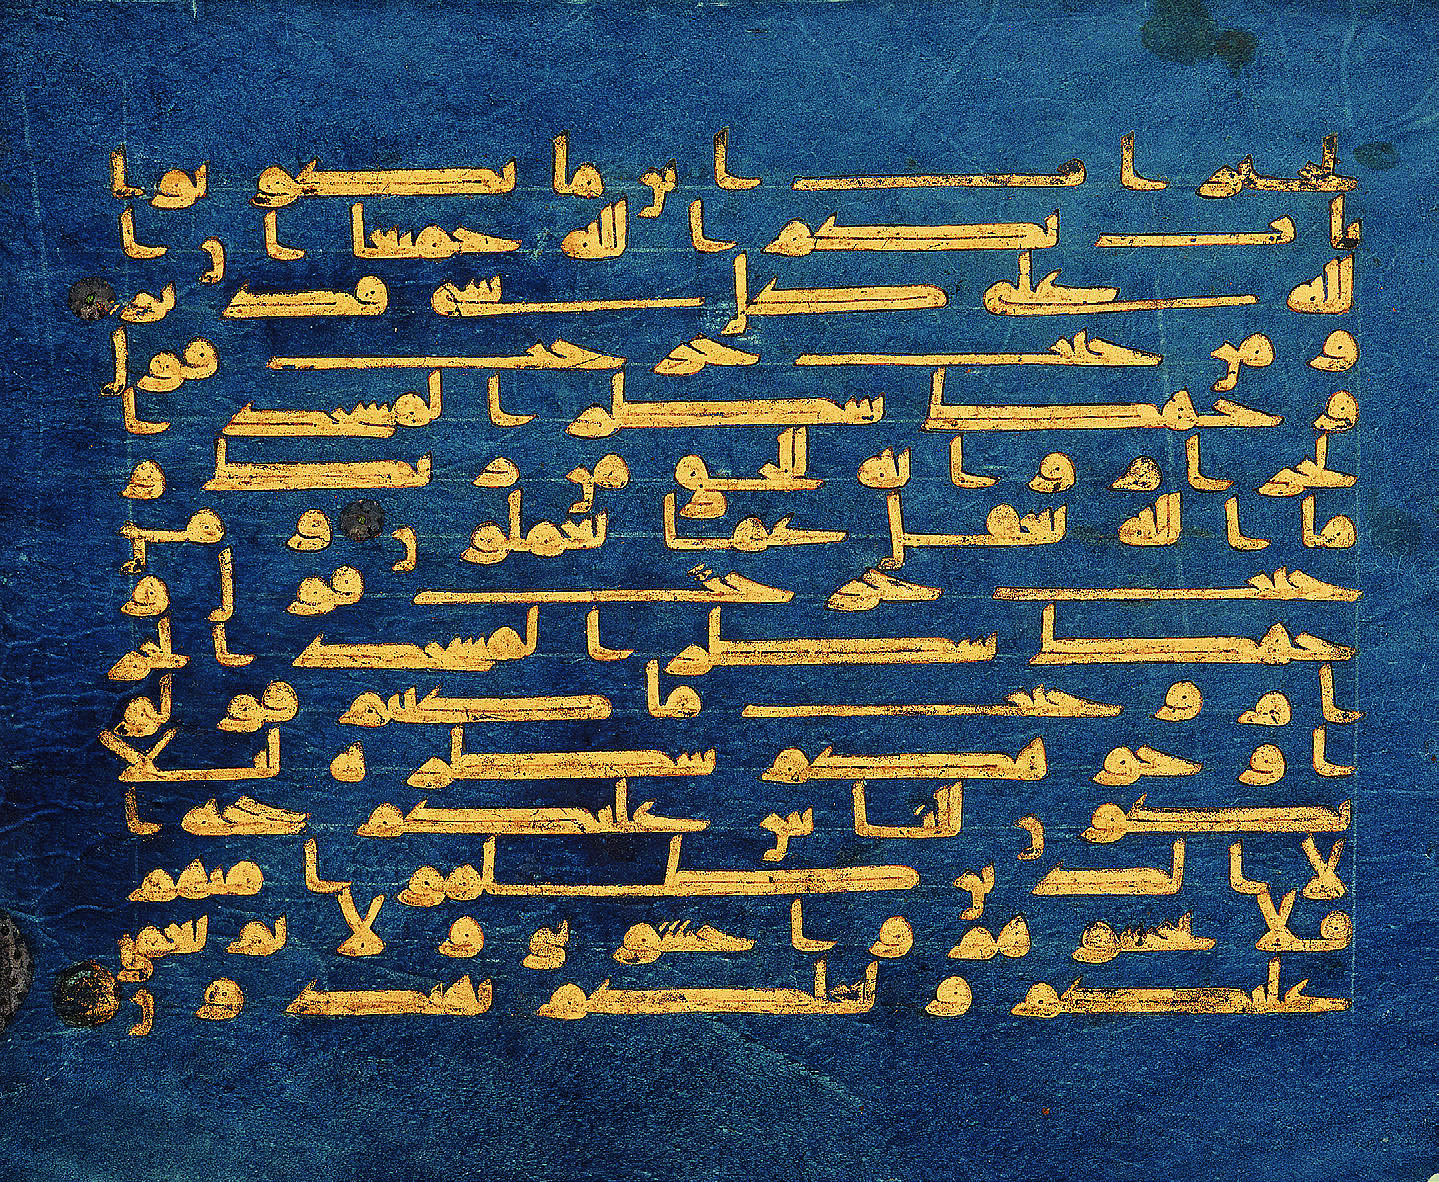 لخيرات اين ما تكونوا
يات بكم الله جميعا ان ا
لله على كل شي قدير
ومن حيث خرجت فول
وجهك شطر المسجد ا
لحرام وانه للحق من ربك و
ما الله بغفل عما تعملون ومن
حيث خرجت فول و
جهك شطر المسجد الحر
ام وحيث ما كنتم فولو
ا وجوهكم شطره لئلا
يكون للناس عليكم حجة ا
لا الذين ظلموا منهم
فلا تخشوهم واخشوني ولاتم نعمتي
عليكم ولعلكم تهتدون